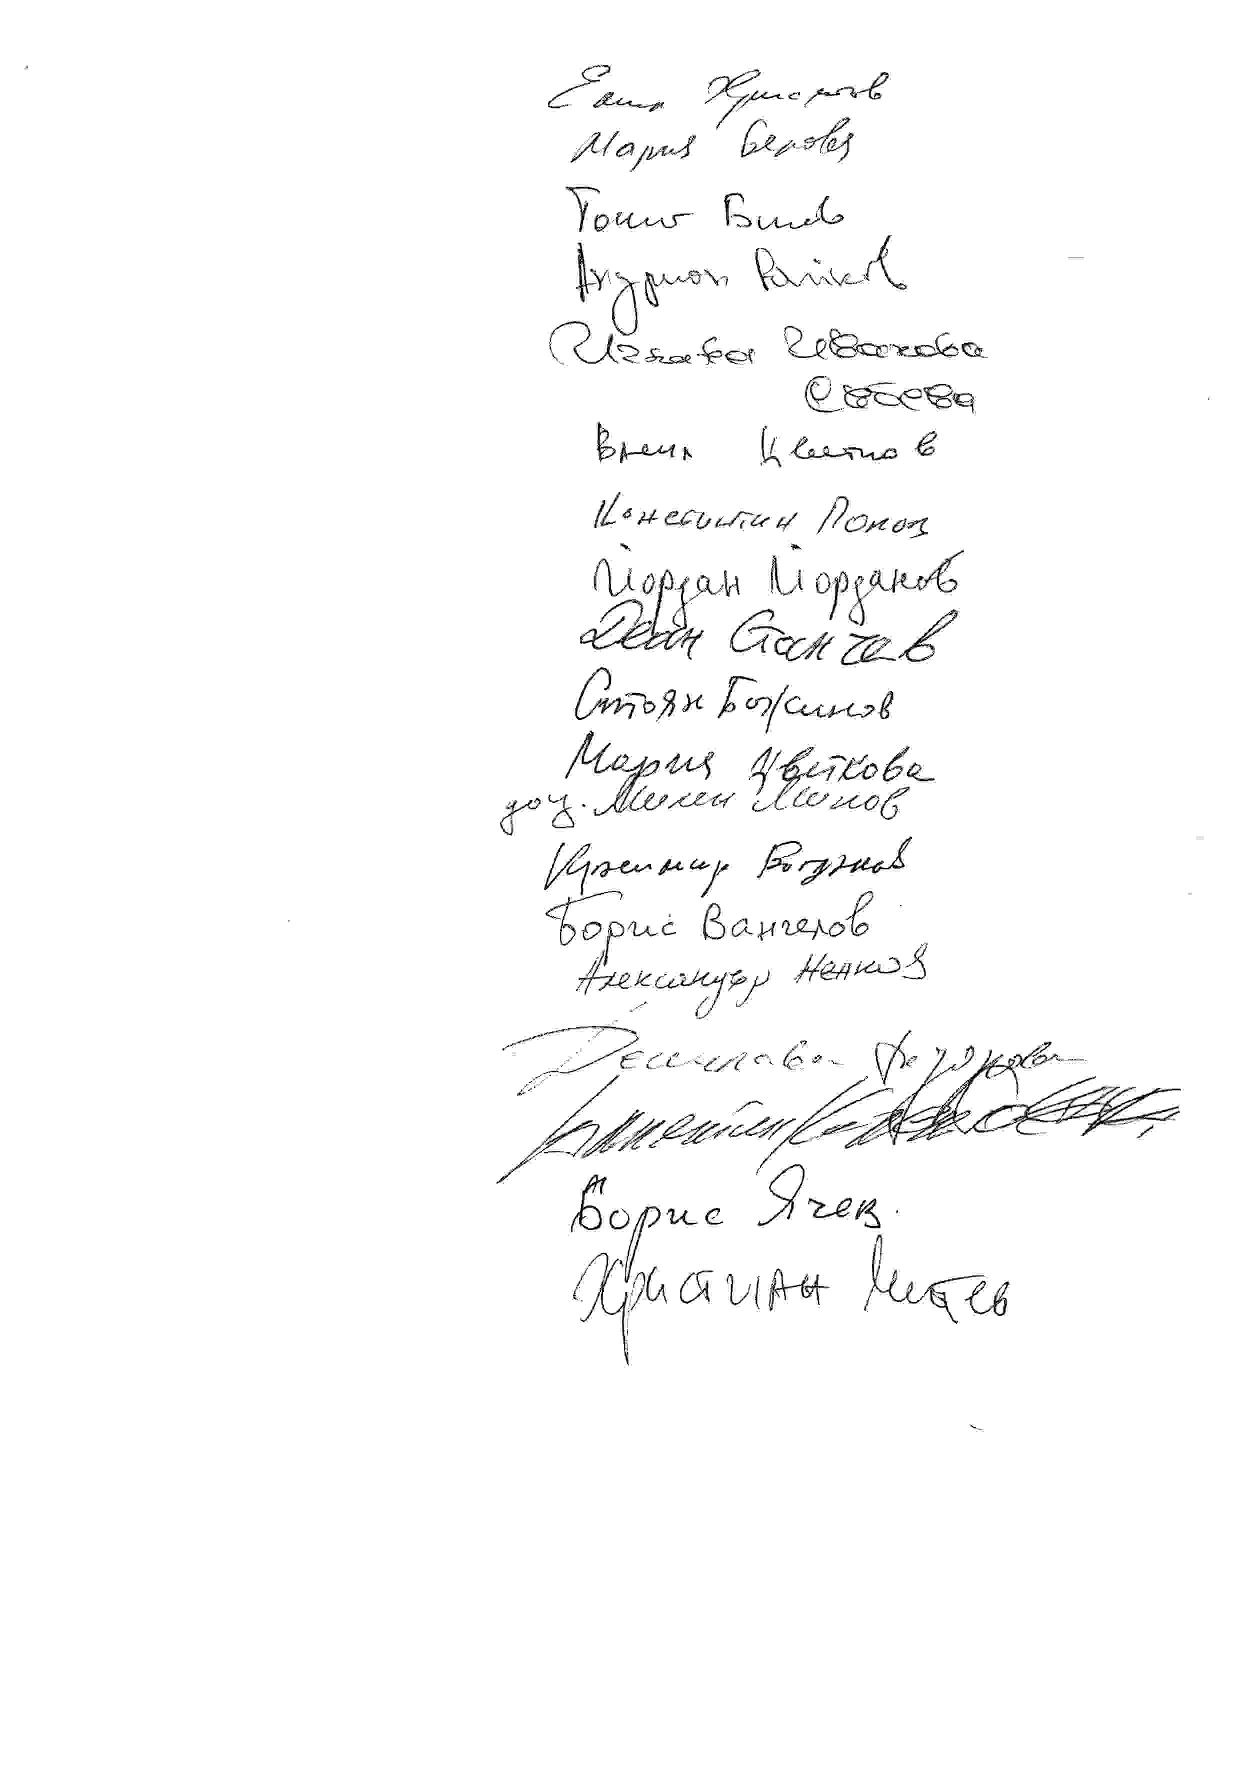 Емил Христов
Мария Белова
Тончо
Андриан Райков
Изгрева Иванова
Събева
Влени Цветков
Константин Попов
Йордан Йорданов
Деан Станчев
Стоян Божинов
Мария Цветкова
доц. Милен Минов
Красимир Богданов
Борис Вангелов
Александър Ненков
Десислава
Борис Ячев.
Християн Митев